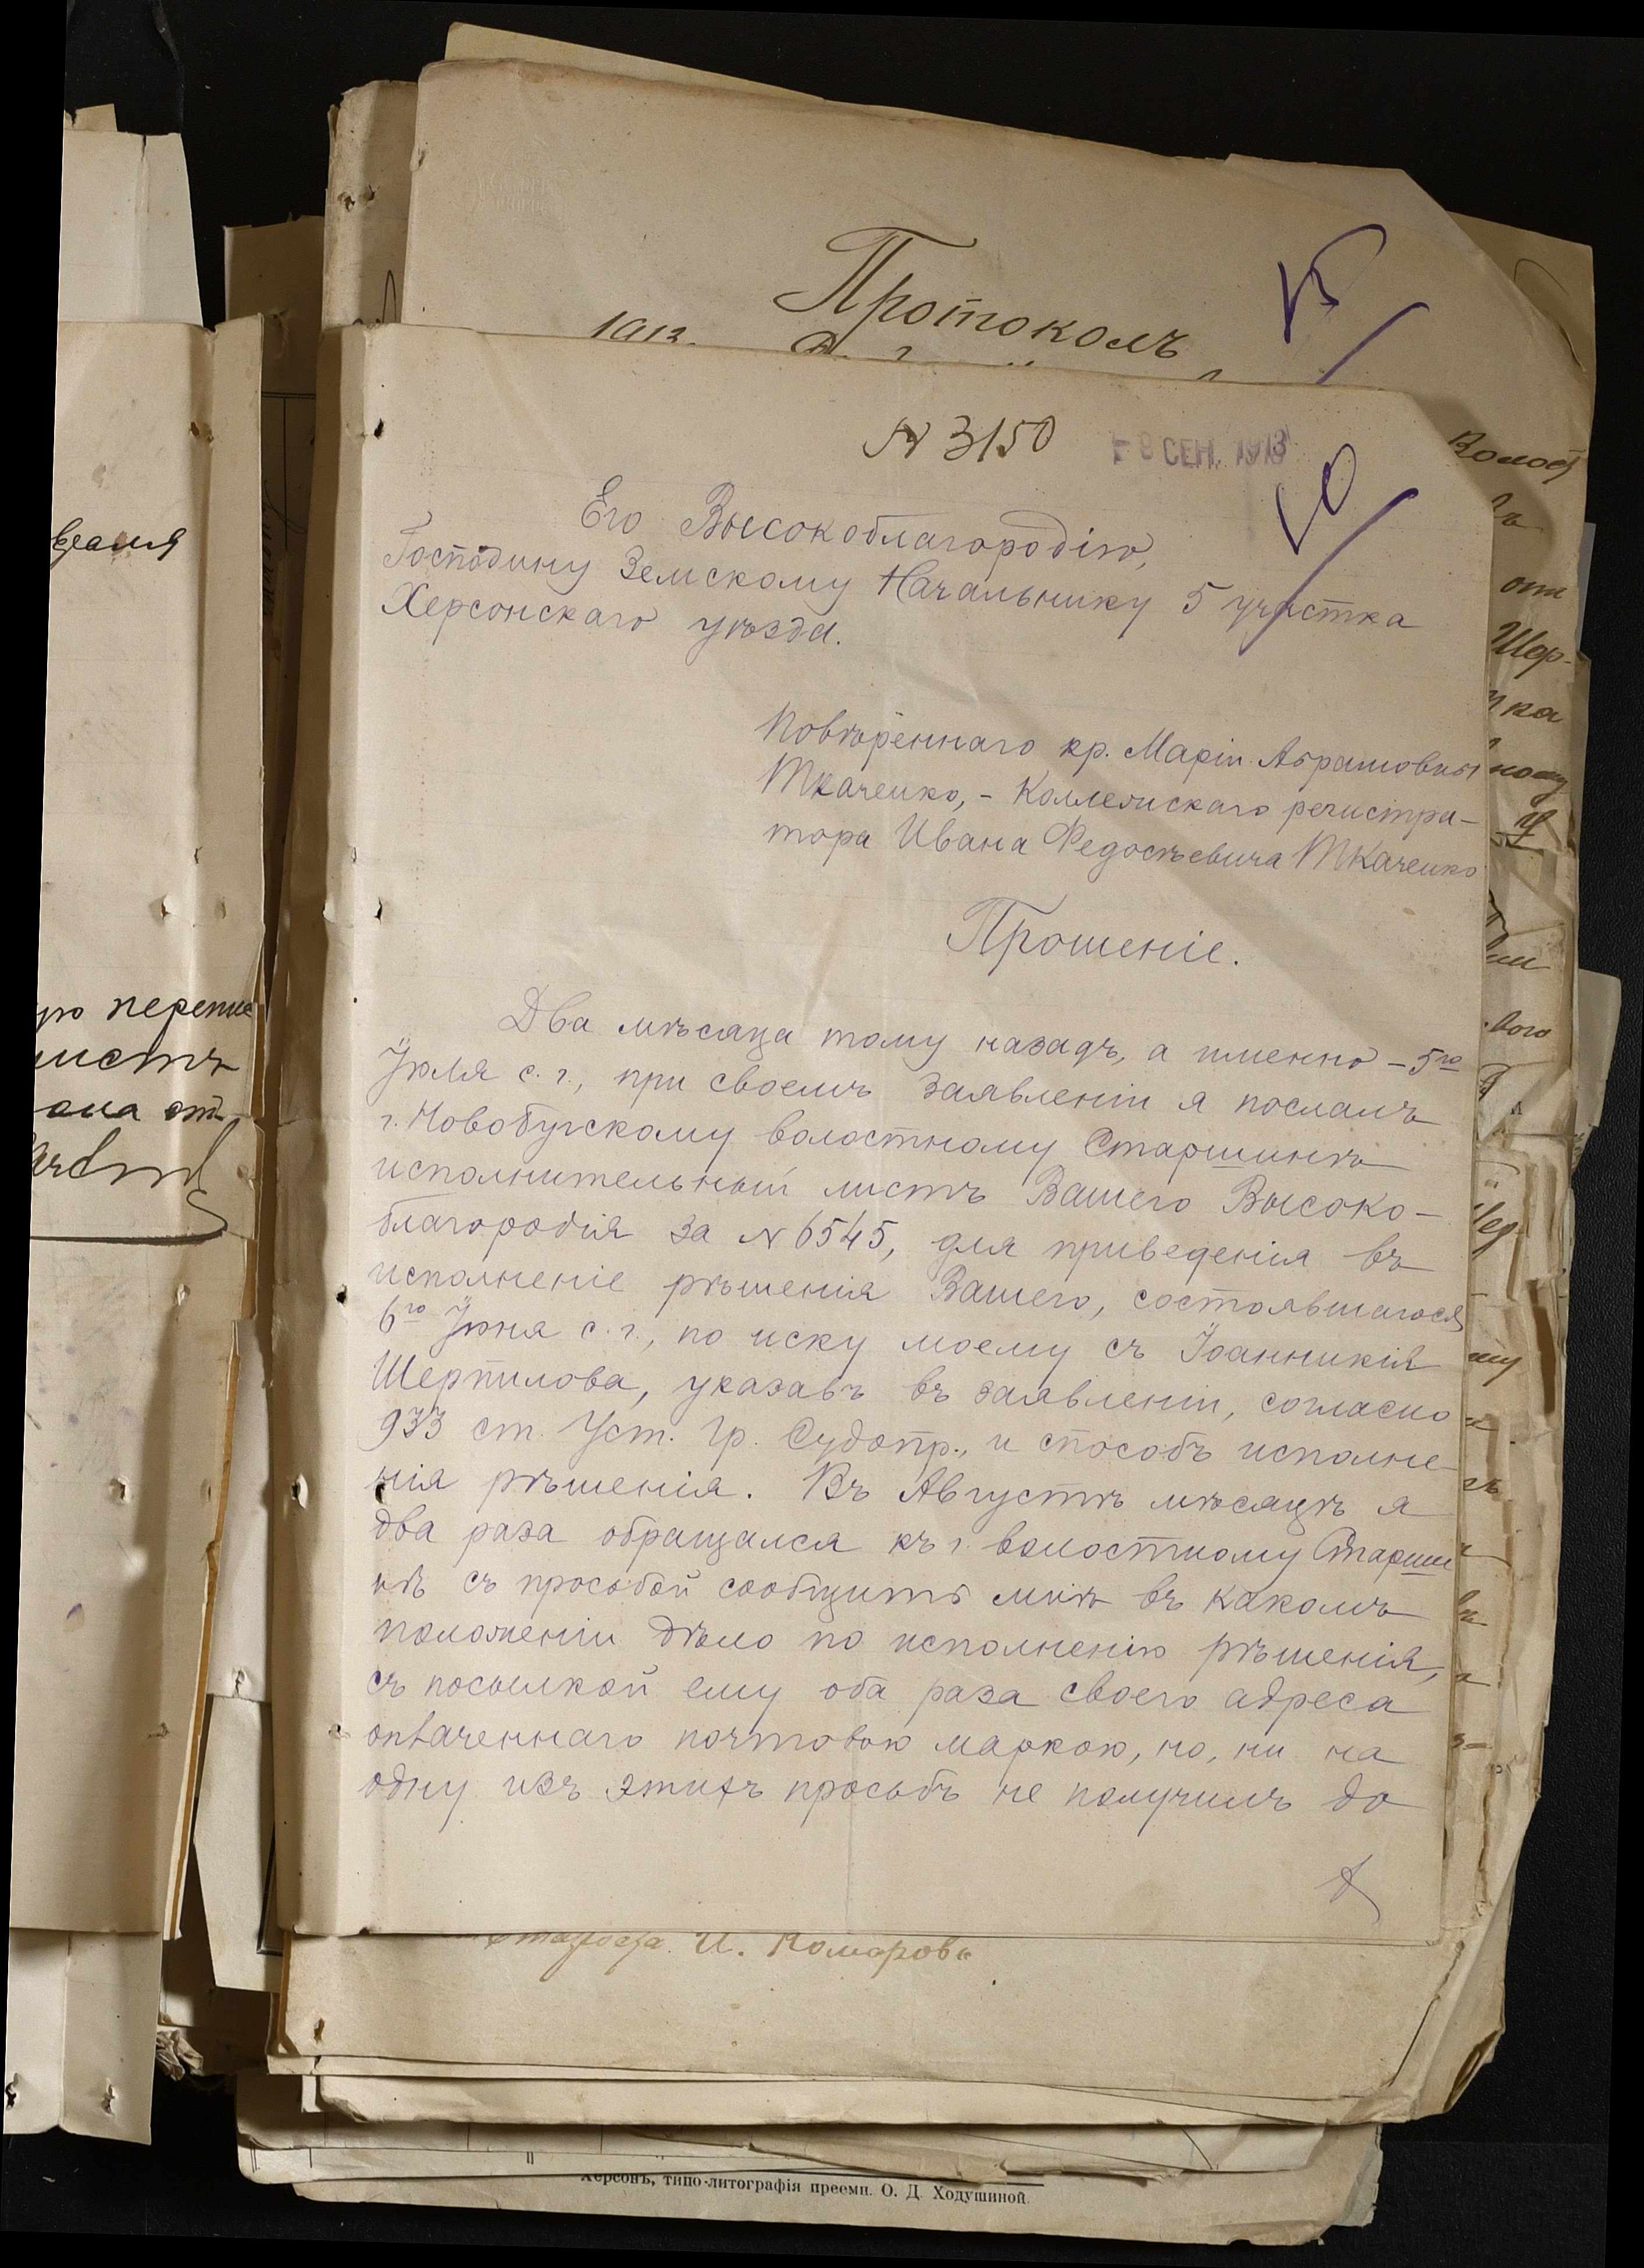 Протоколъ
1912.
N 3150
8 СЕН. 1913
Его Высокоблагородію,
Господину Земскому Начальнику 5 участка
Херсонскаго уѣзда.
Повѣреннаго кр. Маріи Абрамовны
Ткаченко, - Коллежскаго регистра-
тора Ивана Федосѣевича Ткаченко
Прошеніе.
Два мѣсяца тому назадъ, а именно - 5го
Іюля с. г., при своемъ заявленіи я послалъ
г. Новобугскому волостному Старшинѣ
исполнительный листъ Вашего Высоко-
благородія за N 6545, для приведенія въ
исполненіе рѣшенія Вашего, состоявшагося
6го Іюня с. г., по иску моему съ Іоанникія
Шерпилова, указавъ въ заявленіи, согласно
933 ст. Уст. Гр. Судопр., и способъ исполне
нія рѣшенія. Въ Августѣ мѣсяцѣ я
два раза обращался къ г. волостному Старши
нѣ съ просьбой сообщить мнѣ въ какомъ
положеніи дѣло по исполненію рѣшенія,
съ посылкой ему оба раза своего адреса
оплаченнаго почтовою маркою, но, ни на
одну изъ этихъ просьбъ не получилъ до
Староста И. Комаровъ
Херсонъ, типо-литографія преемн. О. Д. Ходушиной.
листъ